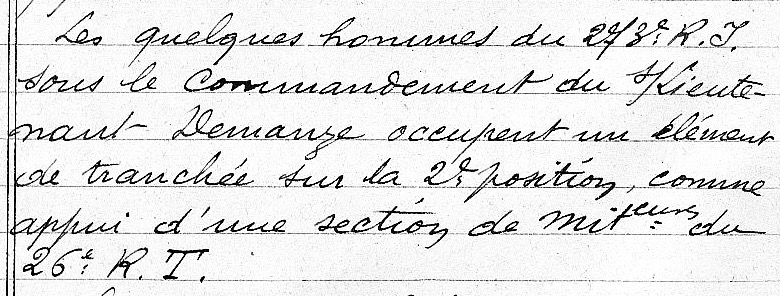 Les quelques hommes du 273e R.I.
sous le commandement du s/Lieute-
nant Demange occupent un élément
de tranchée sur la 2e position, comme
appui d'une section de miteurs du
26e R.I.